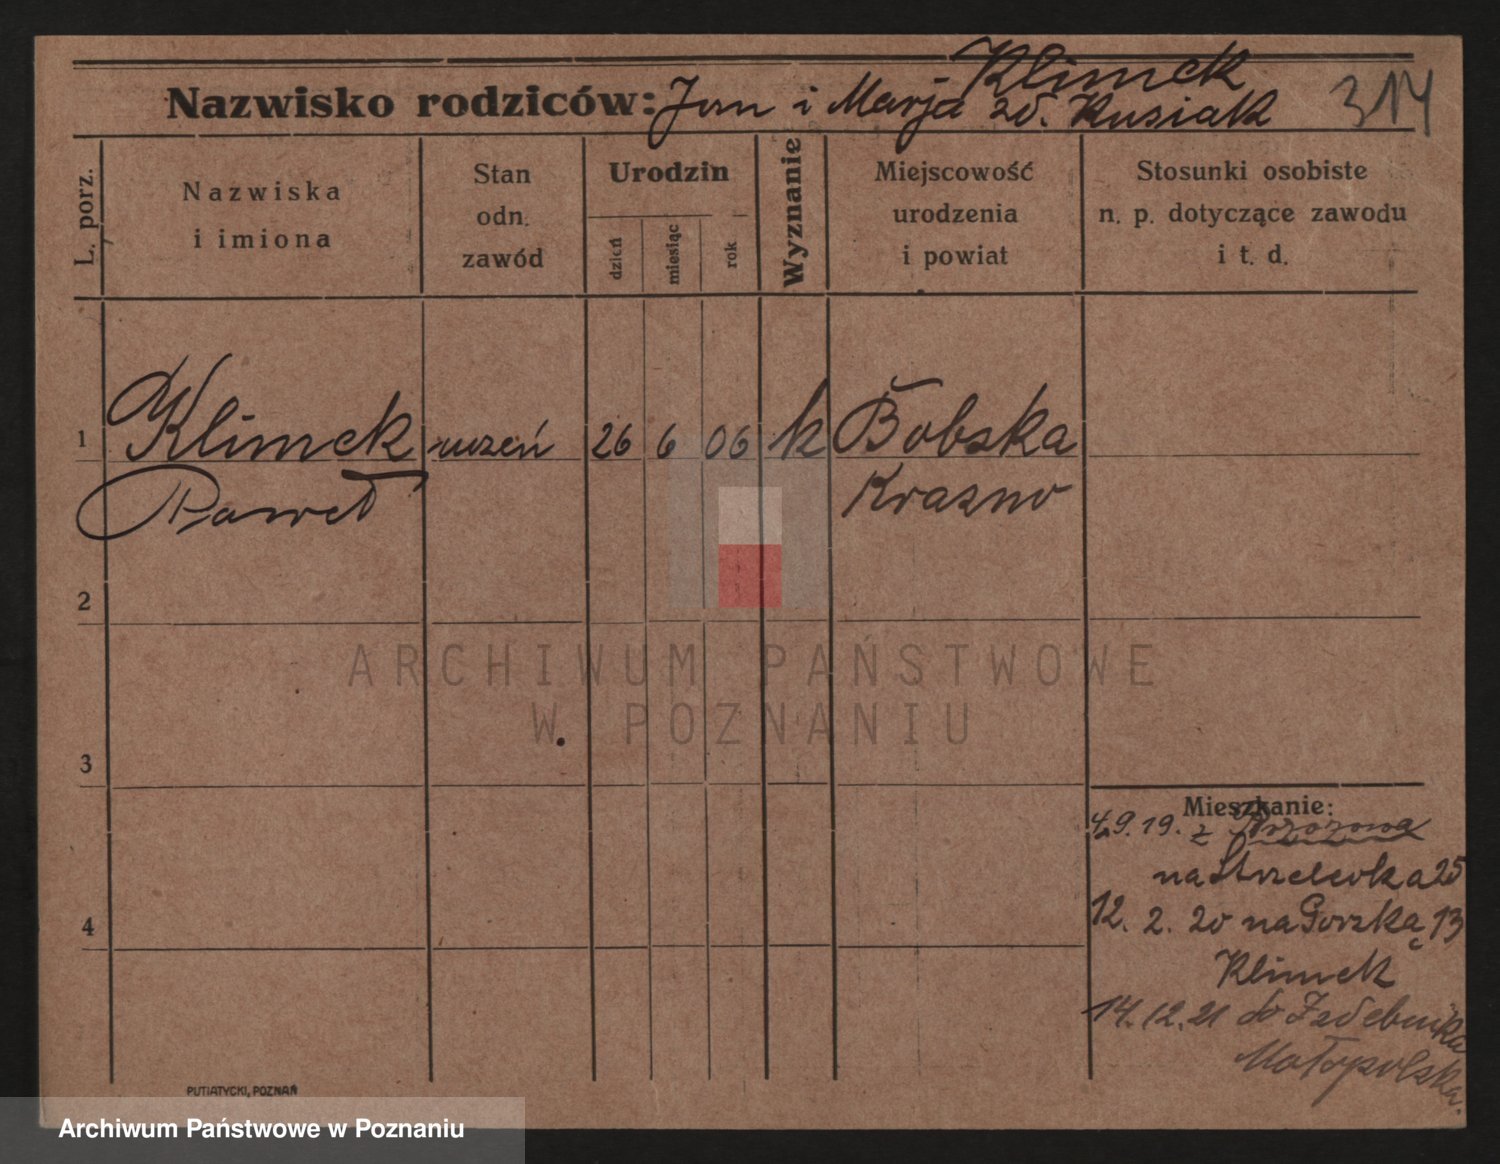 Klimek
Nazwisko rodziców: Jan i Marja zd. Kusiak 314
L. porz.
Nazwiska
i imiona
Stan
odn.
zawód
Urodzin
dzień
miesiąc
rok
Wyznanie
Miejscowość
urodzenia
i powiat
Stosunki osobiste
n. p. dotyczące zawodu
i t. d.
1 Klimek uczeń 26 6 06 k Bobska
Paweł Krasno
2
ARCHIWUM PAŃSTWOWE
W POZNANIU
3
Mieszkanie:
4.9.19. z
na Strzelecka 25
4
12. 2. 20 na Gorzką 13
Klimek
14.12.21 do
Małopolska.
PUTIATYCKI, POZNAŃ
Archiwum Państwowe w Poznaniu